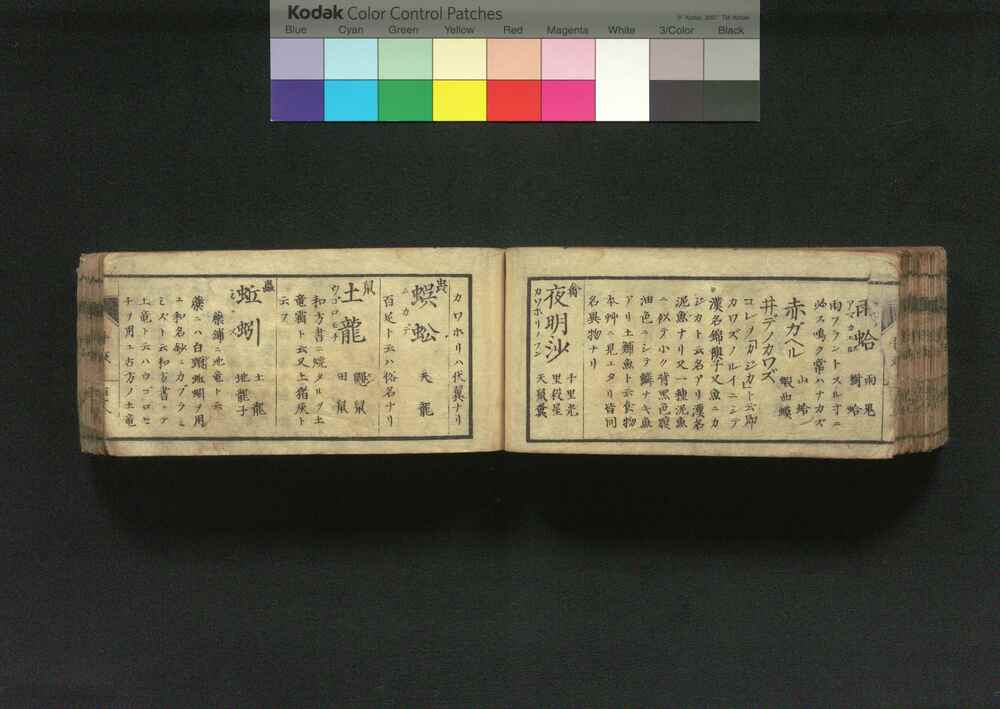 Kodak Color Control Patches
Blue Cyan Green Yellow Red Magenta White 3/Color Black
雨蛤
雨鬼
樹蛤
雨フラントスル寸ニ
必ス鳴ク常ハナカズ
赤ガヘル
山蛤
井デノカワズ
コレノ「カジカ」ト云即
カワズノルイニシテ
漢名錦襖子又魚ニカ
ジカト云名アリ漢名
泥魚ナリ又一種泥魚
ニ似テ小ク背黒色腹
油色ニシテ鱗ナキ魚
アリ土鯆魚ト云食物
本艸ニ見エタリ皆同
名異物ナリ
夜明沙
カワホリノフン
千里光
里段星
天鼠糞
カワホリハ伏翼ナリ
蜈蚣
ムカデ
天龍
百足ト云ハ俗名ナリ
土龍
ウゴロモチ
鼴鼠
田鼠
和方書ニ焼タルヲ土
竜霜ト云又土猪灰ト
云フ
蚯蚓
ミミズ
土龍
地龍子
藥鋪ニ地竜ト云
藥ニハ白頸蚯蚓ヲ用
ユ和名鈔ニカブラミ
ミズト云和方書ニテ
土竜ト云ハウゴロモ
チヲ用ユ古方ノ土竜